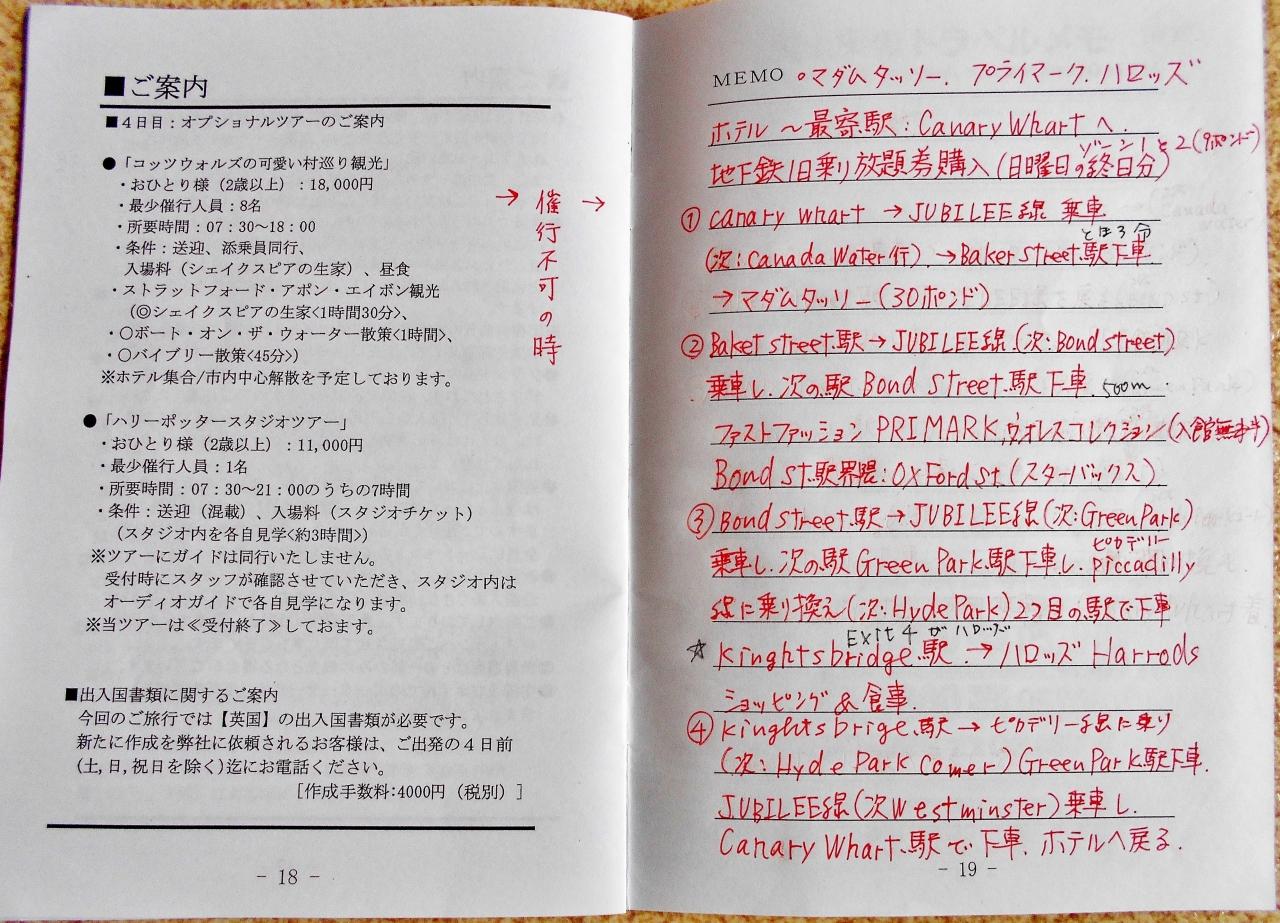 ■ご案内
■4日目：オプショナルツアーのご案内
●「コッツウォルズの可愛い村巡り観光」
・おひとり様（2歳以上）：18,000円
・最少催行人員：8名
・所要時間：07：30～18：00
・条件：送迎、添乗員同行、
入場料（シェイクスピアの生家）、昼食
・ストラットフォード・アポン・エイボン観光
（◎シェイクスピアの生家<1時間30分>、
・○ボート・オン・ザ・ウォーター散策<1時間>、
・○バイブリー散策<45分>）
※ホテル集合/市内中心解散を予定しております。
→ 催行不可の時 →
●「ハリーポッタースタジオツアー」
・おひとり様（2歳以上）：11,000円
・最少催行人員：1名
・所要時間：07：30～21：00のうちの7時間
・条件：送迎（混載）、入場料（スタジオチケット）
（スタジオ内を各自見学<約3時間>）
※ツアーにガイドは同行いたしません。
受付時にスタッフが確認させていただき、スタジオ内は
オーディオガイドで各自見学になります。
※当ツアーは≪受付終了≫しておます。
■出入国書類に関するご案内
今回のご旅行では【英国】の出入国書類が必要です。
新たに作成を弊社に依頼されるお客様は、ご出発の4日前
(土,日,祝日を除く)迄にお電話ください。
[作成手数料:4000円（税別）]
- 18 -
MEMO ○マダムタッソー．プライマーク．ハロッズ
ホテル～最寄駅：Canary Whartへ．
ゾーン1と2(9ポンド)
地下鉄1日乗り放題券購入(日曜日の終日分)
① Canary Whart →JUBILEE線 乗車
とほ3分
(次：Canada Water行) →Baker street.駅下車
→マダムタッソー(30ポンド)
② Baket street.駅→JUBILEE線(次：Bond street)
乗車し．次の駅 Bond Street.駅下車．500m．
ファストファッション PRIMARK，ウオレスコレクション(入館無料)
Bond st.駅界隈：OXFord St.(スターバックス)
③ Bond street.駅→JUBILEE線(次：Green Park)
ピカデリー
乗車し．次の駅Green Park.駅下車し．piccadilly
線に乗り換え(次：Hyde Park)2つ目の駅で下車
Exit 4 がハロッズ
☆ Kinghtsbridge.駅．→ハロッズ Harrods
ショッピング&食事．
④ Kinghts brige.駅→ピカデリー線に乗り
(次：Hyde Park Comer)Green Park.駅下車．
JUBILEE線(次Westminster)乗車し．
Canary Whart.駅で下車．ホテルへ戻る．
- 19 -